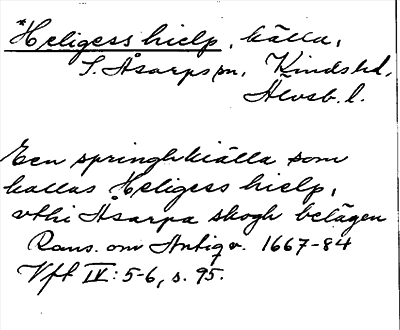 *Heligess hielp, källa,
S. Åsarps sn, Kinds hd,
Älvsb. l.
Een springhkiälla som
kallas Heligess hielp,
vthi Åsarpa skogh belägen
Rans. om Antiqv. 1667-84
Vft IV: 5-6, s. 95.